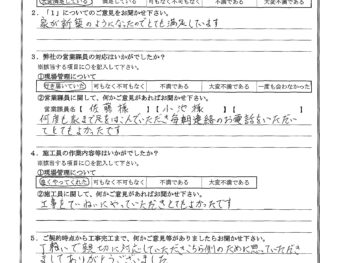 大変満足している 満足している 可もなく不可もなく 不満である 大変不満である
2．「1」についてのご意見をお聞かせ下さい。
家が新築のようになったのでとても満足しています
3．弊社の営業課員の対応はいかがでしたか？
※該当する項目に○を記入して下さい。
①現場管理について
行き届いていた 可もなく不可もなく 不満である 大変不満である 一度も会わなかった
②営業課員に関して、何かご意見があればお聞かせ下さい。
営業課員名【 佐藤様 】【 小池様 】
何度も家まで足をはこんでいただき毎朝連絡のお電話をいただい
てとてもよかったです
4．施工員の作業内容等はいかがでしたか？
※該当する項目に○を記入して下さい。
①現場管理について
良くやってくれた 可もなく不可もなく 不満である 大変不満である
②施工員に関して、何かご意見がありましたらお聞かせ下さい。
工事をていねいにやっていただきとてもよかったです
5．ご契約時点から工事完工まで、何かご意見等がありましたらお聞かせ下さい。
丁寧で親切に対応していただきこちら側のために思っていただき
ましてありがとうございました